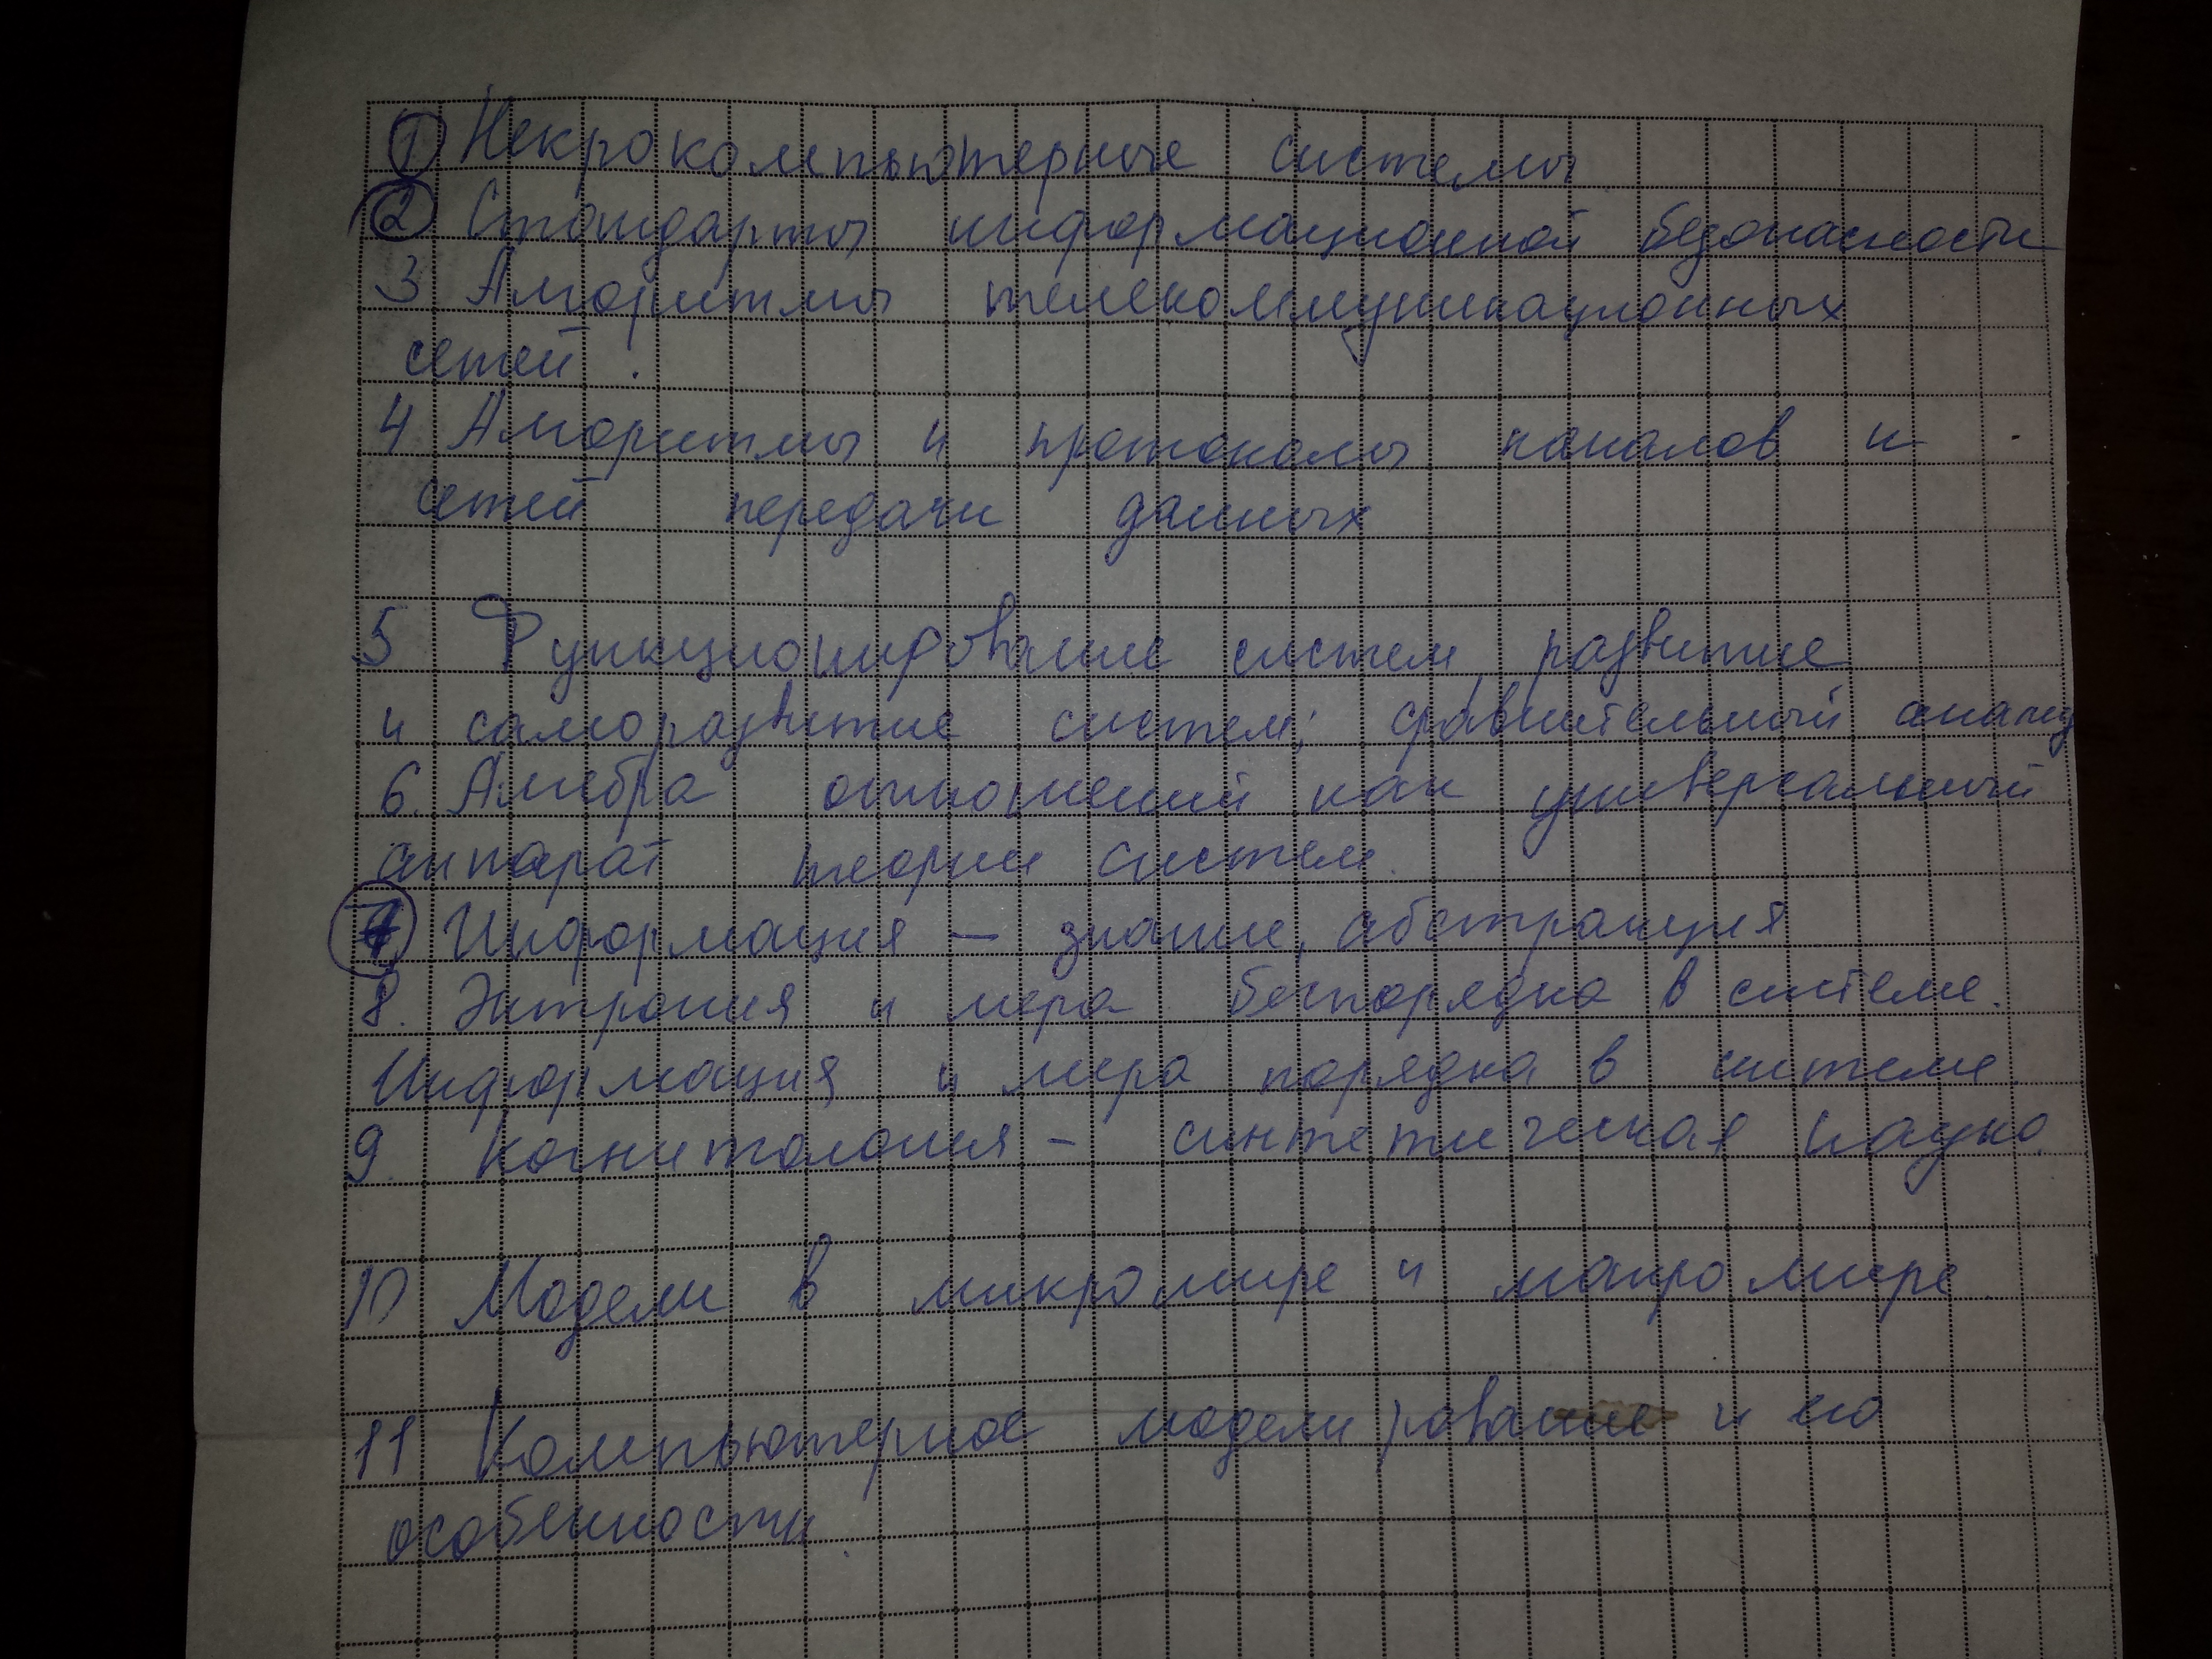 1 Некрокомпьютерные системы
2 Стандарты информационной безопасности
3 Алгоритмы телекоммуникационных
сетей.
4 Алгоритмы и протоколы каналов и
сетей передачи данных
5 Функционирование систем, развитие
и саморазвитие систем; сравнительный анализ
6. Алгебра отношений как универсальный
аппарат теории систем.
7. Информация — знание, абстракция
8. Энтропия и мера беспорядка в системе.
Информация и мера порядка в системе.
9. Когнитология – синтетическая наука.
10 Модели в микромире и макромире.
11 Компьютерное моделирование и его
особенности.